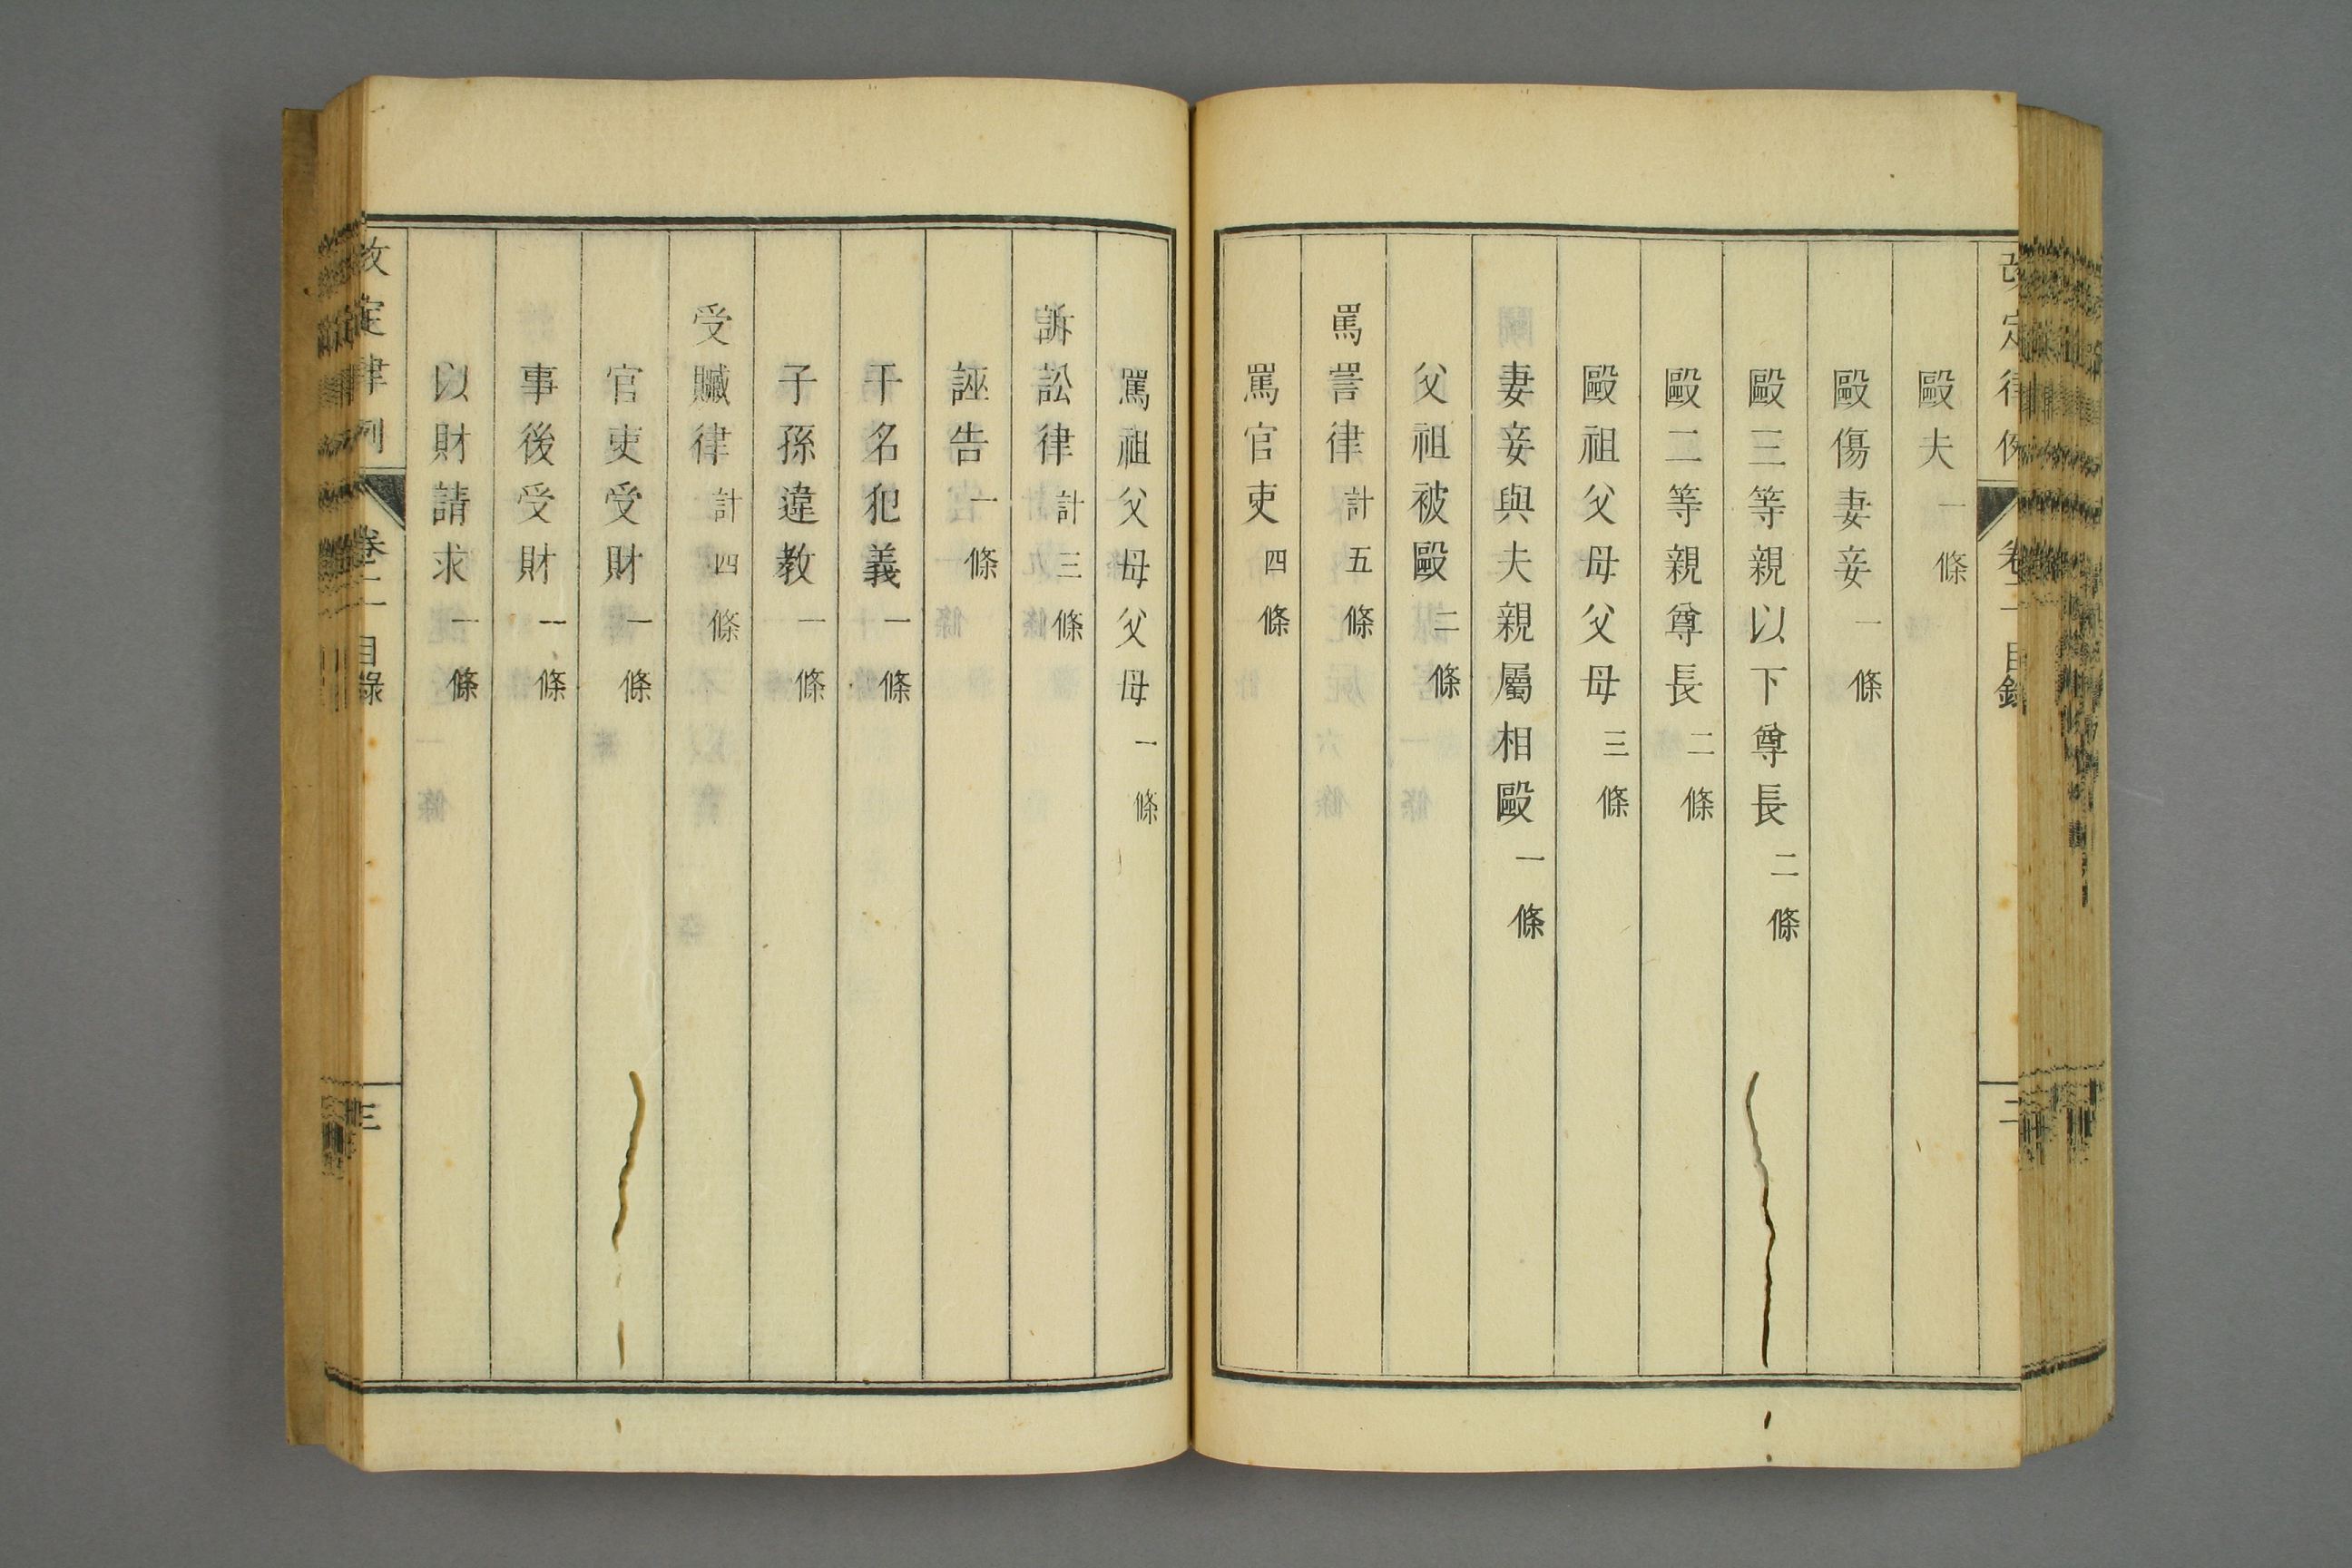 改定律例 卷二 目錄 二
毆夫 一條
毆傷妻妾 一條
毆三等親以下尊長 二條
毆二等親尊長 二條
毆祖父母父母 三條
妻妾與夫親屬相毆 一條
父祖被毆 二條
罵詈律 計五條
罵官吏 四條
罵祖父母父母 一條
訴訟律 計三條
誣告 一條
干名犯義 一條
子孫違教 一條
受贓律 計四條
官吏受財 一條
事後受財 一條
以財請求 一條
改定律例 卷二 目錄 三